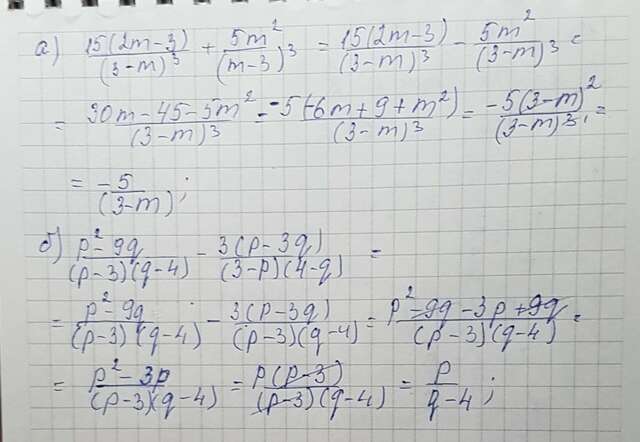 а) 15(2m-3)/(3-m)³ + 5m²/(m-3)³ = 15(2m-3)/(3-m)³ - 5m²/(3-m)³ =
= 30m-45-5m²/(3-m)³ = -5(-6m+9+m²)/(3-m)³ = -5(3-m)²/(3-m)³ =
= -5/(3-m);
б) p²-9q/(p-3)(q-4) - 3(p-3q)/(3-p)(4-q) =
= p²-9q/(p-3)(q-4) - 3(p-3q)/(p-3)(q-4) = p²-9q-3p+9q/(p-3)(q-4) =
= p²-3p/(p-3)(q-4) = p(p-3)/(p-3)(q-4) = p/q-4;